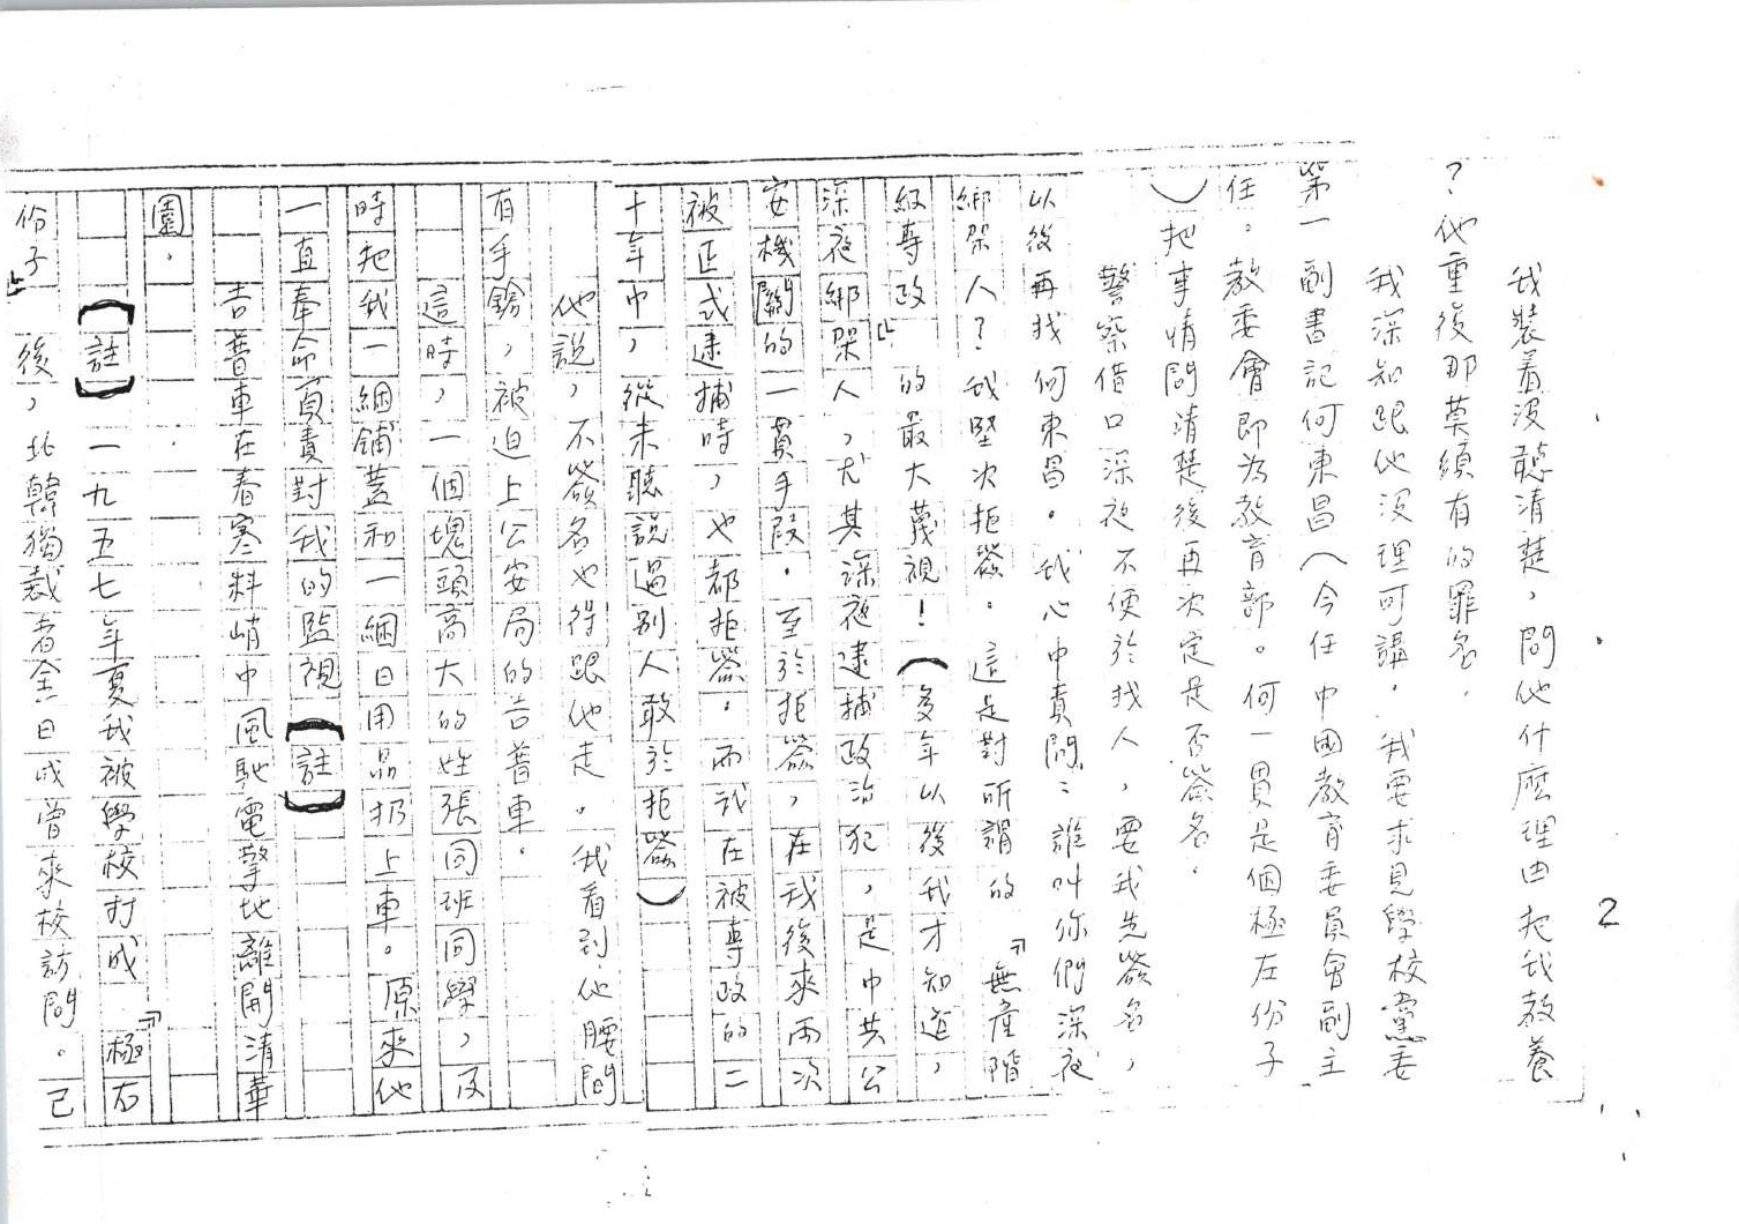 2
我裝着沒聽清楚，問他什麽理由把我教養
？他重復那莫須有的罪名．
我深知跟他沒理可講．我要求見學校黨委
第一副書記何東昌（今任中國教育委員會副主
任。教委會即為教育部。何一貫是個極左份子
）把事情問清楚後再次定是否簽名．
警察借口深夜不便於找人，要我先簽名，
以後再找何東昌．我心中責問：誰叫你們深夜
綁架人？我堅决拒簽．這是對所謂的『無產階
級專政』的最大蔑視！（多年以後我才知道，
深夜綁架人，尤其深夜逮捕政治犯，是中共公
安機關的一貫手段．至於拒簽，在我後來兩次
被正式逮捕時，也都拒簽．而我在被專政的二
十年中，從未聽說過別人敢於拒簽）
他說，不簽名也得跟他走。我看到他腰間
有手銬，被迫上公安局的吉普車．
這時，一個塊頭高大的姓張同班同學，及
時把我一綑鋪蓋和一綑日用品扔上車。原來他
一直奉命負責對我的監視【註】
吉普車在春寒料峭中風馳電掣地離開清華
園．
【註】一九五七年夏我被學校打成『極右
份子』後，北韓獨裁者金日成曾來校訪問．已